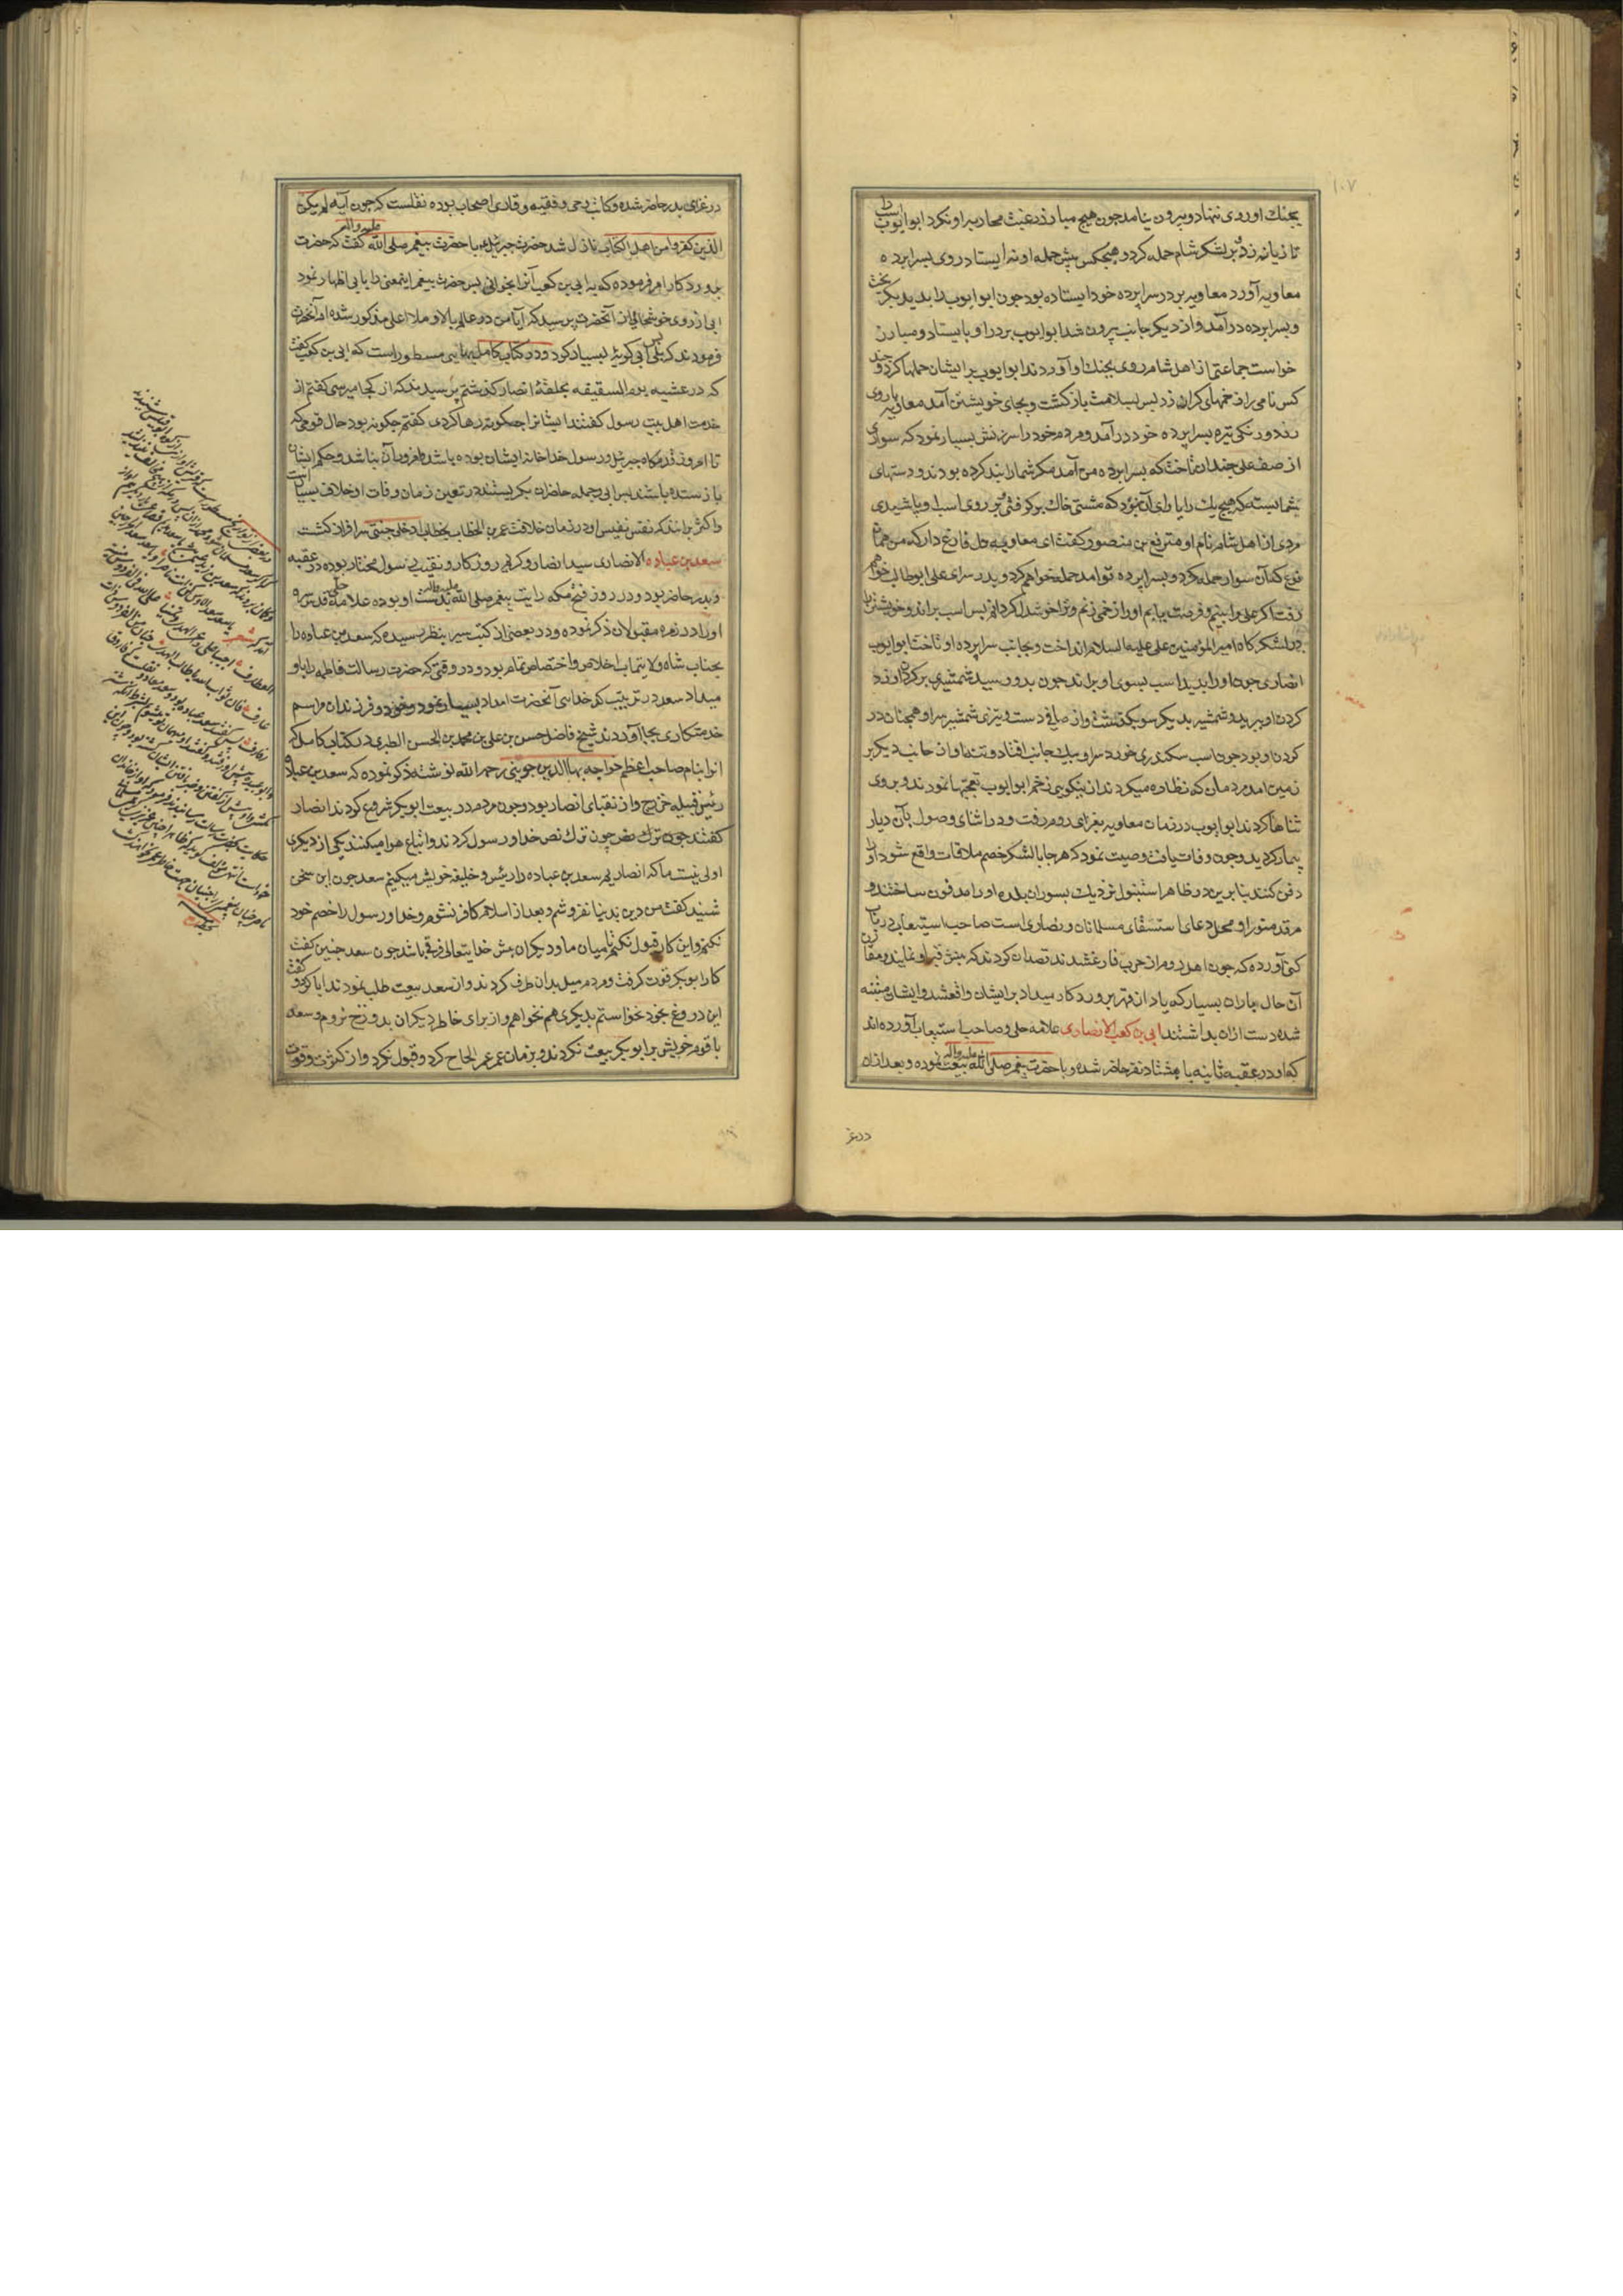 ۱۰۷
بجنك او روی ننهاد و بیرون نیامد چون هیچ مبارز رغبت محاربه او نکرد ابوایوب اسب را
تازیانه زد و بر لشکر شام حمله کرد و هیچکس پیش حمله او نه ایستاد روی بسراپرده
معاویه آورد معاویه بر در سراپرده خود ایستاده بود چون ابوایوب را بدید بکریخت
و بسراپرده در آمد و از دیکر جانب بیرون شد ابوایوب بر در او بایستاد و مبارز
خواست جماعتی از اهل شام روی بجنك او آوردند ابوایوب بر ایشان حملها کرد و چند
کس نامی را زخمهای کران زد پس بسلامت بازکشت و بجای خویشتن آمد معاویه با روی
زرد و رنکی تیره بسراپرده خود در آمد و مردم خود را سرزنش بسیار نمود که سواری
از صف علی چندان تاخت که بسراپرده من آمد مکر شما را بند کرده بودند و دستهای
شما بسته که هیچ یك را یارای آن نبود که مشتی خاك برکرفتی و بر روی اسب او پاشیدی
مردی از اهل شام نام او مترفع بن منصور کفت ای معاویه دل فارغ دار که من همان
نوع که آن سوار حمله کرد و بسراپرده تو آمد حمله خواهم کرد و بدر سرای علی ابوطالب خواهم
رفت اکر علی را بینم و فرصت یابم او را زخمی زنم و ترا خوشدل کردانم پس اسب براند و خویشتن را
در لشکرکاه امیرالمؤمنین علی علیه السلام انداخت و بجانب سراپرده او تاخت ابوایوب
انصاری چون او را بدید اسب بسوی او براند چون بدو رسید شمشیری بر کردن او زد
کردن او ببرید و شمشیر بدیکر سو بکذشت و از صافی دست و تیزی شمشیر سر او همچنان در
کردن او بود چون اسب سکندری خورد سر او بیك جانب افتاد و تنه او از جانب دیکر بر
زمین آمد و مردمان که نظاره میکردند از نیکویی زخم ابوایوب تعجبها نمودند و بر وی
ثناها کردند ابوایوب در زمان معاویه بغزای روم رفت و در اثنای وصول بآن دیار
بیمار کردید و چون وفات یافت وصیت نمود که هر جا با لشکر خصم ملاقات واقع شود او را
دفن کنند بنابرین در ظاهر استنبول نزدیك بسور آن بلده او را مدفون ساختند و
مرقد منور او محل دعای استسقای مسلمانان و نصاری است صاحب استیعاب در باب
کنی آورده که چون اهل روم از حرب فارغ شدند قصد آن کردند که نبش قبر او نمایند و مقارن
آن حال باران بسیار که یاد از قهر پروردکار میداد بر ایشان واقع شد و ایشان متنبه
شده دست ازان بداشتند ابی بن کعب الانصاری علامه حلی و صاحب استیعاب آورده اند
که او در عقبه ثانیه با هشتاد نفر حاضر شده و با حضرت پیغمبر صلی الله علیه و آله بیعت نموده و بعد ازان
در غز
در غزای بدر حاضر شده و کاتب وحی و فقیه و قاری اصحاب بوده نقلست که چون آیه لم یکن
الذین کفروا من اهل الکتاب نازل شد حضرت جبرئیل با حضرت پیغمبر صلی الله علیه و آله کفت که حضرت
پروردکار امر فرموده که بر ابی بن کعب آنرا بخوانی پس حضرت پیغمبر اینمعنی را با ابی اظهار نمود
ابی از روی خوشحالی از آنحضرت پرسید که آیا من در عالم بالا و ملا اعلی مذکور شده ام آنحضرت
فرمودند که بلی پس ابی کریه بسیار کرد و در کتاب کامل بهایی مسطور است که ابی بن کعب کفت
که در عشیه یوم السقیفه بحلقه انصار کذشتم پرسیدند که از کجا میرسی کفتم از
خدمت اهل بیت رسول کفتند ایشانرا چکونه رها کردی کفتم چکونه بود حال قومی که
تا امروز قدمکاه جبرئیل و رسول خدا خانه ایشان بوده باشد و امروز آن نباشد و حکم ایشان
باز ستده باشند پس ابی و جمله حاضران بکریستند در تعین زمان وفات او خلاف بسیار است
و اکثر برانند که نفس نفیس او در زمان خلافت عمر بن الخطاب بخطاب ادخلی جنتی سرافراز کشت
سعد بن عباده الانصاری سید انصار و کریم روزکار و نقیب رسول مختار بوده در عقبه
و بدر حاضر بود و در روز فتح مکه رایت پیغمبر صلی الله علیه و آله بدست او بوده علامه حلی قدس سره
او را در زمره مقبولان ذکر نموده و در بعضی از کتب سیر بنظر رسیده که سعد بن عباده را
بجناب شاه ولایتماب اخلاص و اختصاص تمام بود و در وقتی که حضرت رسالت فاطمه را باو
میداد سعد در ترتیب کدخدایی آنحضرت امداد بسیار نمود و خود و فرزندان مراسم
خدمتکاری بجا آوردند شیخ فاضل حسن بن علی بن محمد بن الحسن الطبری در کتاب کامل که
انرا بنام صاحب اعظم خواجه بهاالدین جوینی رحمه الله نوشته ذکر نموده که سعد بن عباده
رئیس قبیله خزرج و از نقبای انصار بود و چون مردم در بیعت ابوبکر شروع کردند انصار
کفتند چون ترك نص چون ترك نص خدا و رسول کردند و اتباع هوا میکنند یکی از دیکری
اولی نیست ما که انصاریم سعد بن عباده را رئیس و خلیفه خویش میکنیم سعد چون این سخن
شنید کفت من دین بدنیا نفروشم و بعد از اسلام کافر نشوم و خدا و رسول را خصم خود
نکنم و این کار قبول نکنم تا میان ما و دیکران پیش خدایتعالی فرقی باشد چون سعد چنین کفت
کار ابوبکر قوت کرفت و مردم میل بدان طرف کردند و از سعد بیعت طلب نمودند ابا کرد و کفت
این دروغ بخود نخواستم بدیکری هم نخواهم و از برای خاطر دیکران بدوزخ نروم و سعد
با قوم خویش بر ابوبکر بیعت نکردند و بزمان عمر عمر الحاح کرد و قبول نکرد و از کثرت و قوت